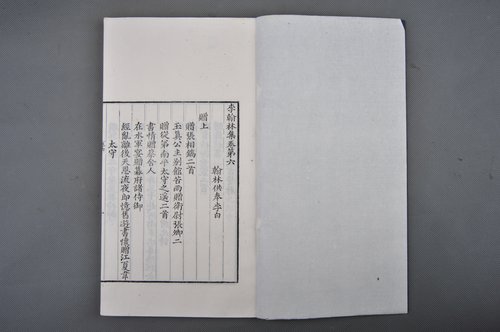 李翰林集卷第六
翰林供奉李白
贈上
贈張相鎬二首
玉真公主別館苦雨贈衛尉張卿二
贈從弟南平太守之遥二首
書情贈蔡舍人
在水軍宴贈幕府諸侍御
經亂離後天恩流夜郎憶舊遊書懷贈江夏韋
太守